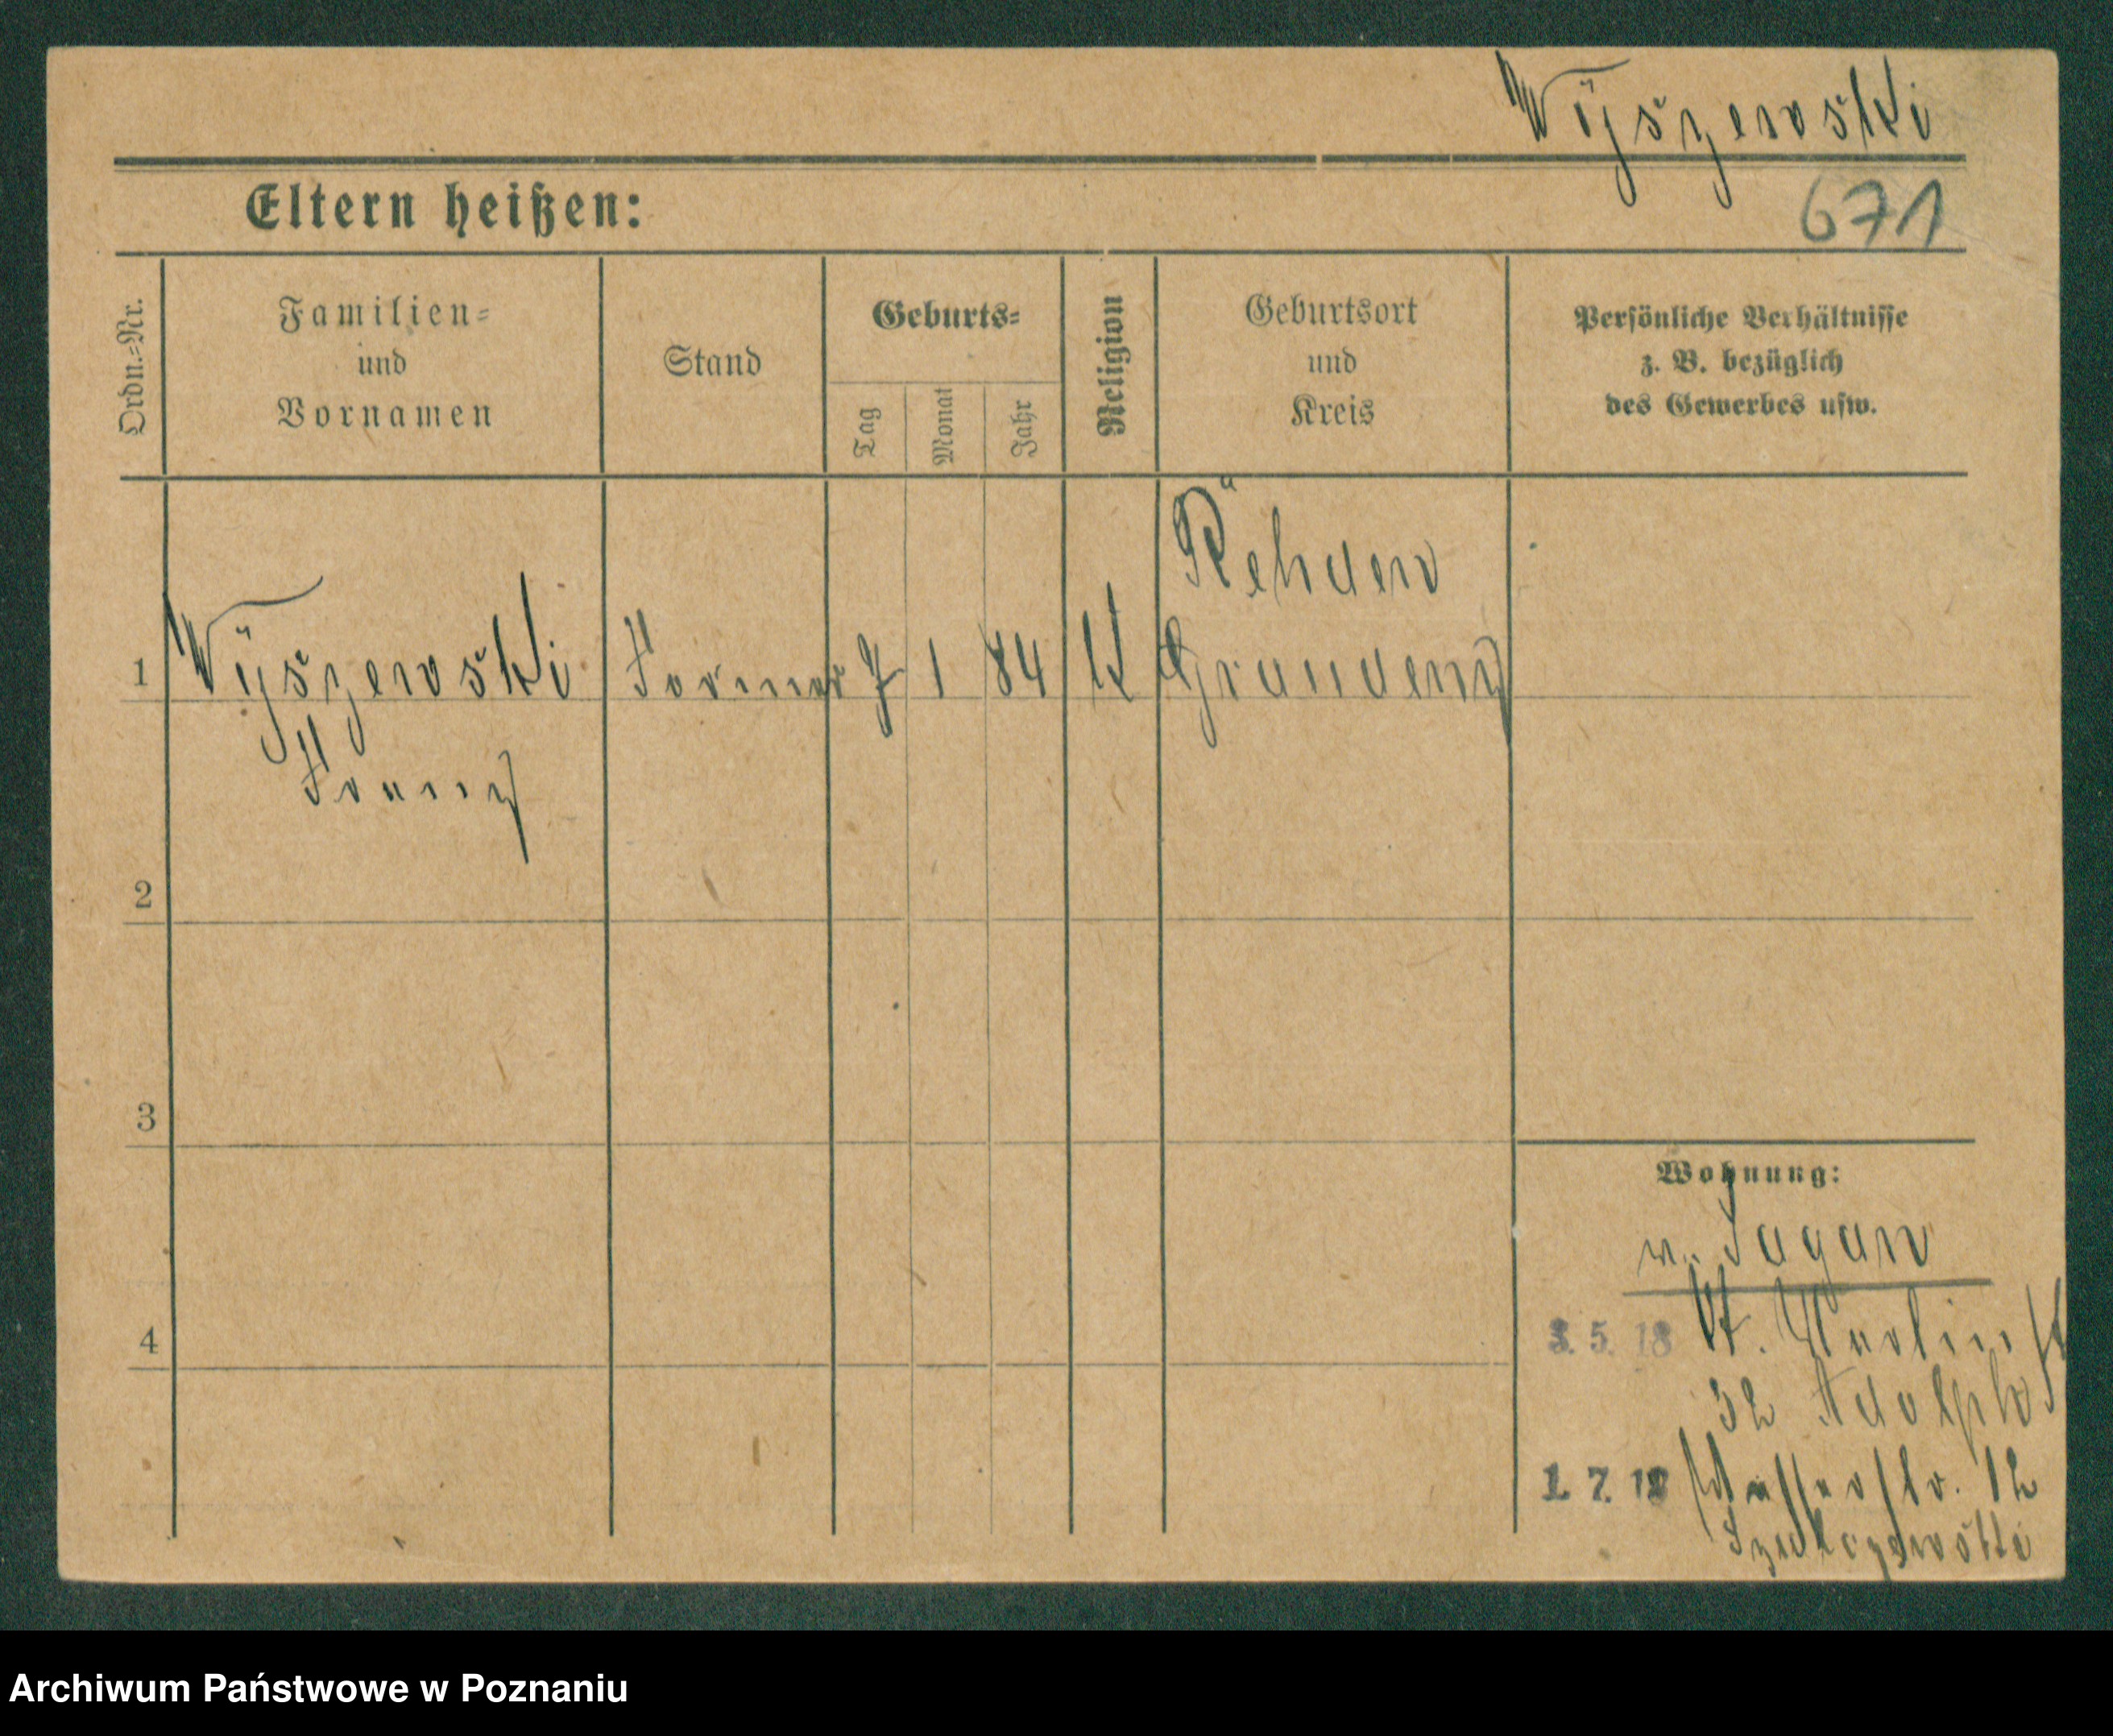 Wyszewski
671
Eltern heißen:
Ordn.-Nr.
Familien-
und
Vornamen
Stand
Geburts-
Tag
Monat
Jahr
Religion
Geburtsort
und
Kreis
Persönliche Verhältnisse
z. B. bezüglich
des Gewerbes usw.
Rehden
1 Wyszewski Former 7 1 84 K Graudenz
Franz
2
3
4
Wohnung:
n. Sagan
3. 5. 18 St. Martin
32 Adolph
1. 7. 18 Wasserstr. 12
Archiwum Państwowe w Poznaniu